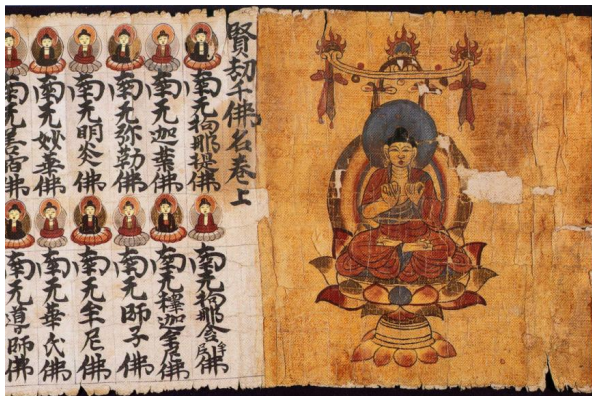 賢劫千佛名卷上
南无拘那提佛
南无拘那含牟尼佛
南无迦葉佛
南无釋迦牟尼佛
南无弥勒佛
南无師子佛
南无明炎佛
南无牟尼佛
南无妙華佛
南无華氏佛
南无善宿佛
南无導師佛